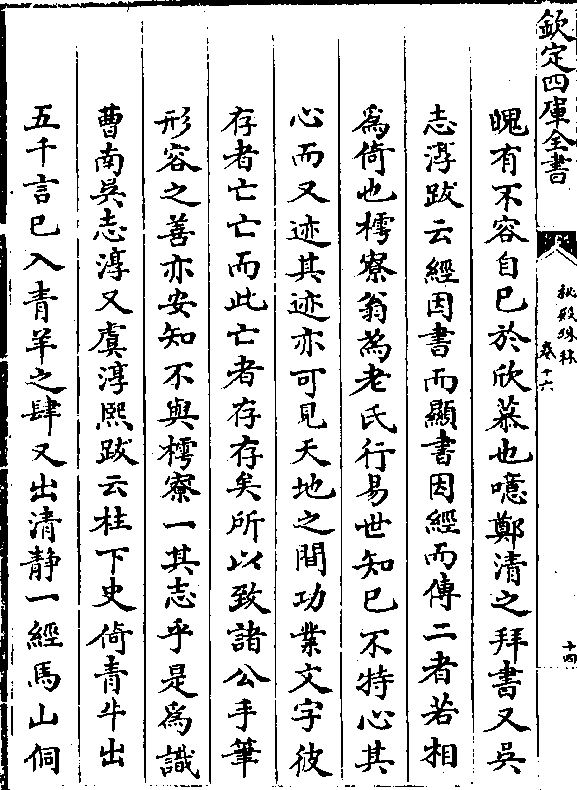 欽定四庫全書
秘殿珠林
卷十六
十四
愧有不容自已於欣慕也噫鄭清之拜書又吳
志淳跋云經因書而顯書因經而傳二者若相
為倚也樗寮翁為老氏行易世知已不特心其
心而又迹其迹亦可見天地之間功業文字彼
存者亡亡而此亡者存存矣所以致諸公手筆
形容之善亦安知不與樗寮一其志乎是為識
曹南吳志淳又虞淳熙跋云柱下史倚青牛出
五千言已入青羊之肆又出清静一經馬山侗